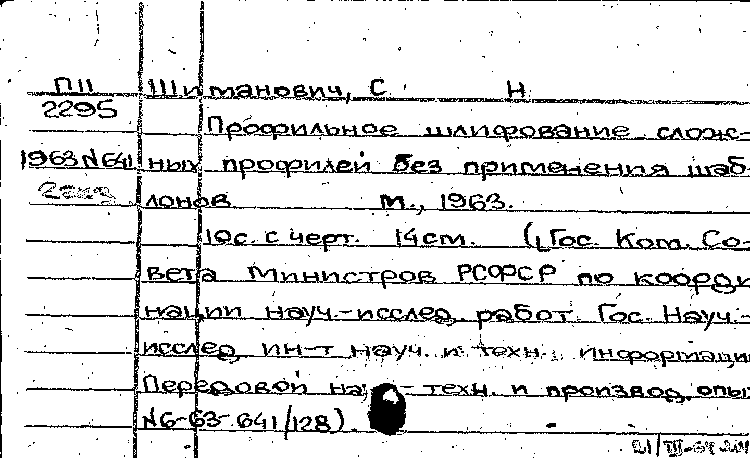 ПII Шиманович, С Н
2295
Профильное шлифование слож-
1963 N 641 ных профилей без применения шаб-
2 экз лонов м., 1963.
10с. с черт. 14см. (Гос. Ком. Со-
вета Министров РСФСР по коорди
нации науч.-исслед. работ. Гос. Науч.-
исслед. ин-т науч. и техн. информации
Передовой науч.-техн. и производ. опыт
N6-63-641/128).